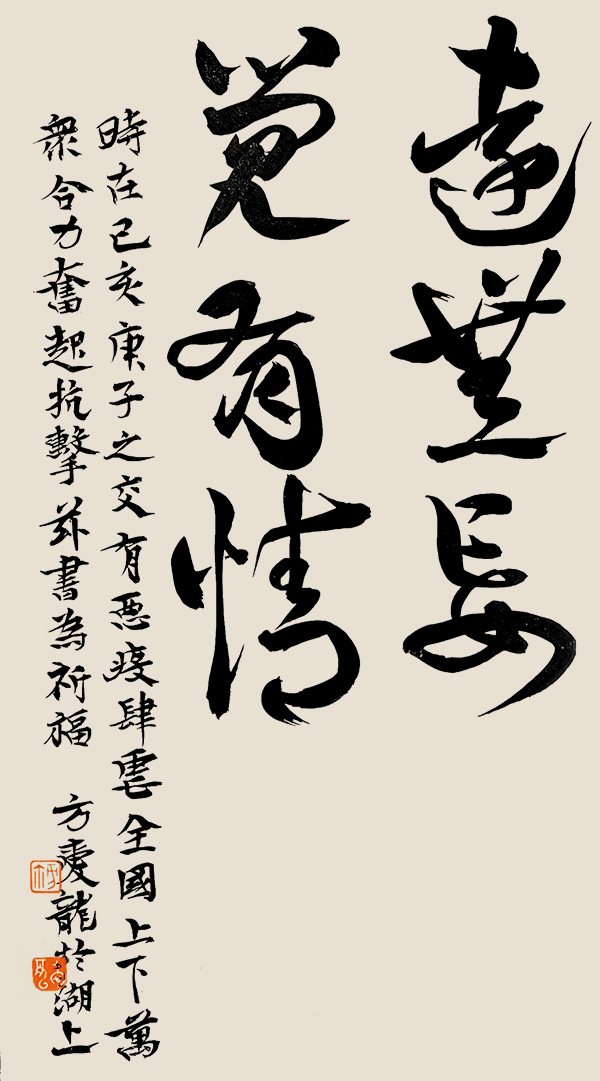 達無妄
覺有情
時在己亥庚子之交有悪疫肆虐全國上下萬
衆合力奮起抗擊茲書為祈福 方愛龍於湖上